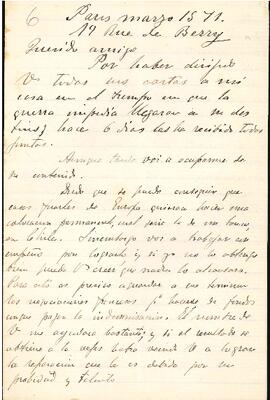 6 Paris marzo 1871.
19 Rue de Berry
Querido amigo
Por haber dirijido
V todas sus cartas a mi
casa en el tiempo en que la
guerra impedia llegaran a su des
tino, hace 6 dias las he recibido todas
juntas.
Aunque tarde voi a ocuparme de
su contenido.
Dudo que se pueda conseguir que
casas fuertes de Europa quieran hacer una
colocacion permanente, cual seria la de un banco,
en Chile. Sin embargo voi a trabajar con
empeño por lograrlo i si yo no lo obtengo
bien puede V creer que nadie lo alcanzara.
Para esto es preciso aguardar a que terminen
las negociaciones para
pagar la indemnizacion. El nombre de
V me ayudara bastante i si el resultado se
obtiene a la vez habra venido V a lograr
la reparacion que le es debida por su
probidad y talento